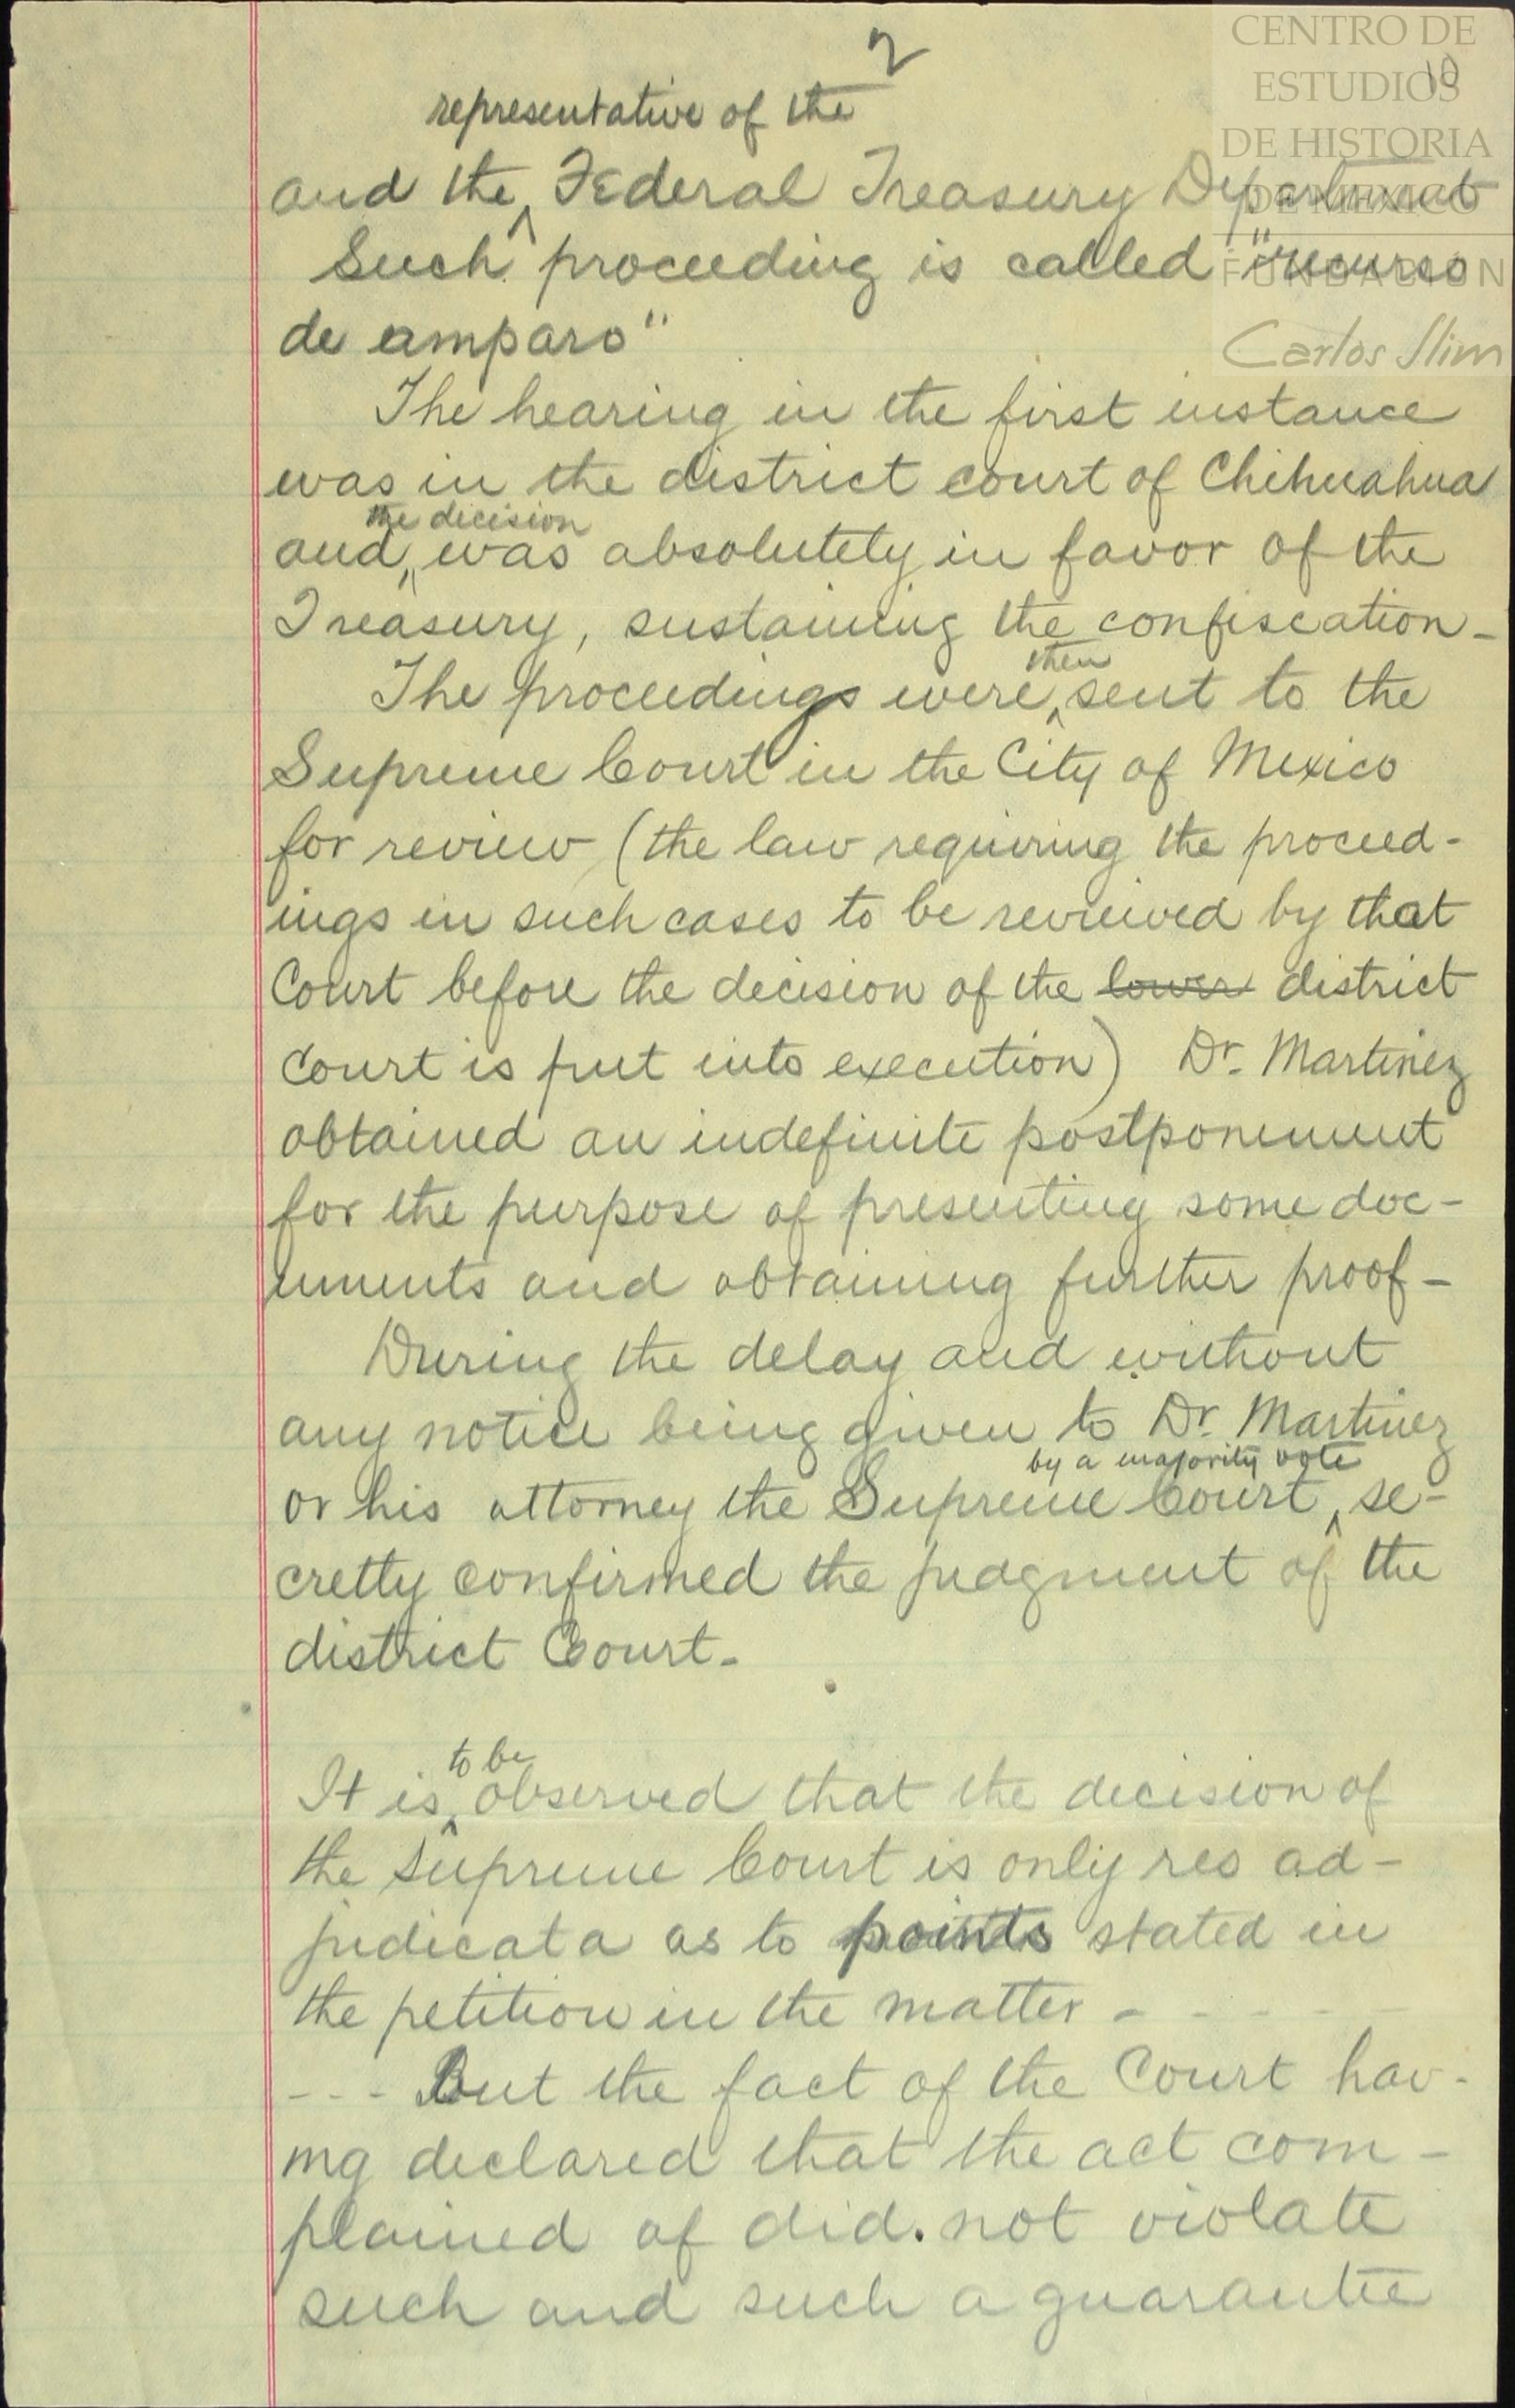 2
10
CENTRO DE
ESTUDIOS
DE HISTORIA
DE MEXICO
FUNDACIÓN
Carlos Slim
representative of the
and the Federal Treasury Department
Such proceeding is called "recurso
de amparo"
The hearing in the first instance
was in the district court of Chihuahua
the decision
and, was absolutely in favor of the
Treasury, sustaining the confiscation -
then
The proceedings were sent to the
Supreme Court in the City of Mexico
for review (the law requiring the proceed-
ings in such cases to be reviewed by that
Court before the decision of the lower district
Court is put into execution) Dr. Martinez
obtained an indefinite postponement
for the purpose of presenting some doc-
uments and obtaining further proof -
During the delay and without
any notice being given to Dr. Martinez
by a majority vote
or his attorney the Supreme Court, se-
cretly confirmed the judgment of the
district Court -
to be
It is observed that the decision of
the Supreme Court is only res ad-
judicata as to points stated in
the petition in the matter - - - - -
- - - But the fact of the Court hav-
ing declared that the act com-
plained of did not violate
such and such a guarantee